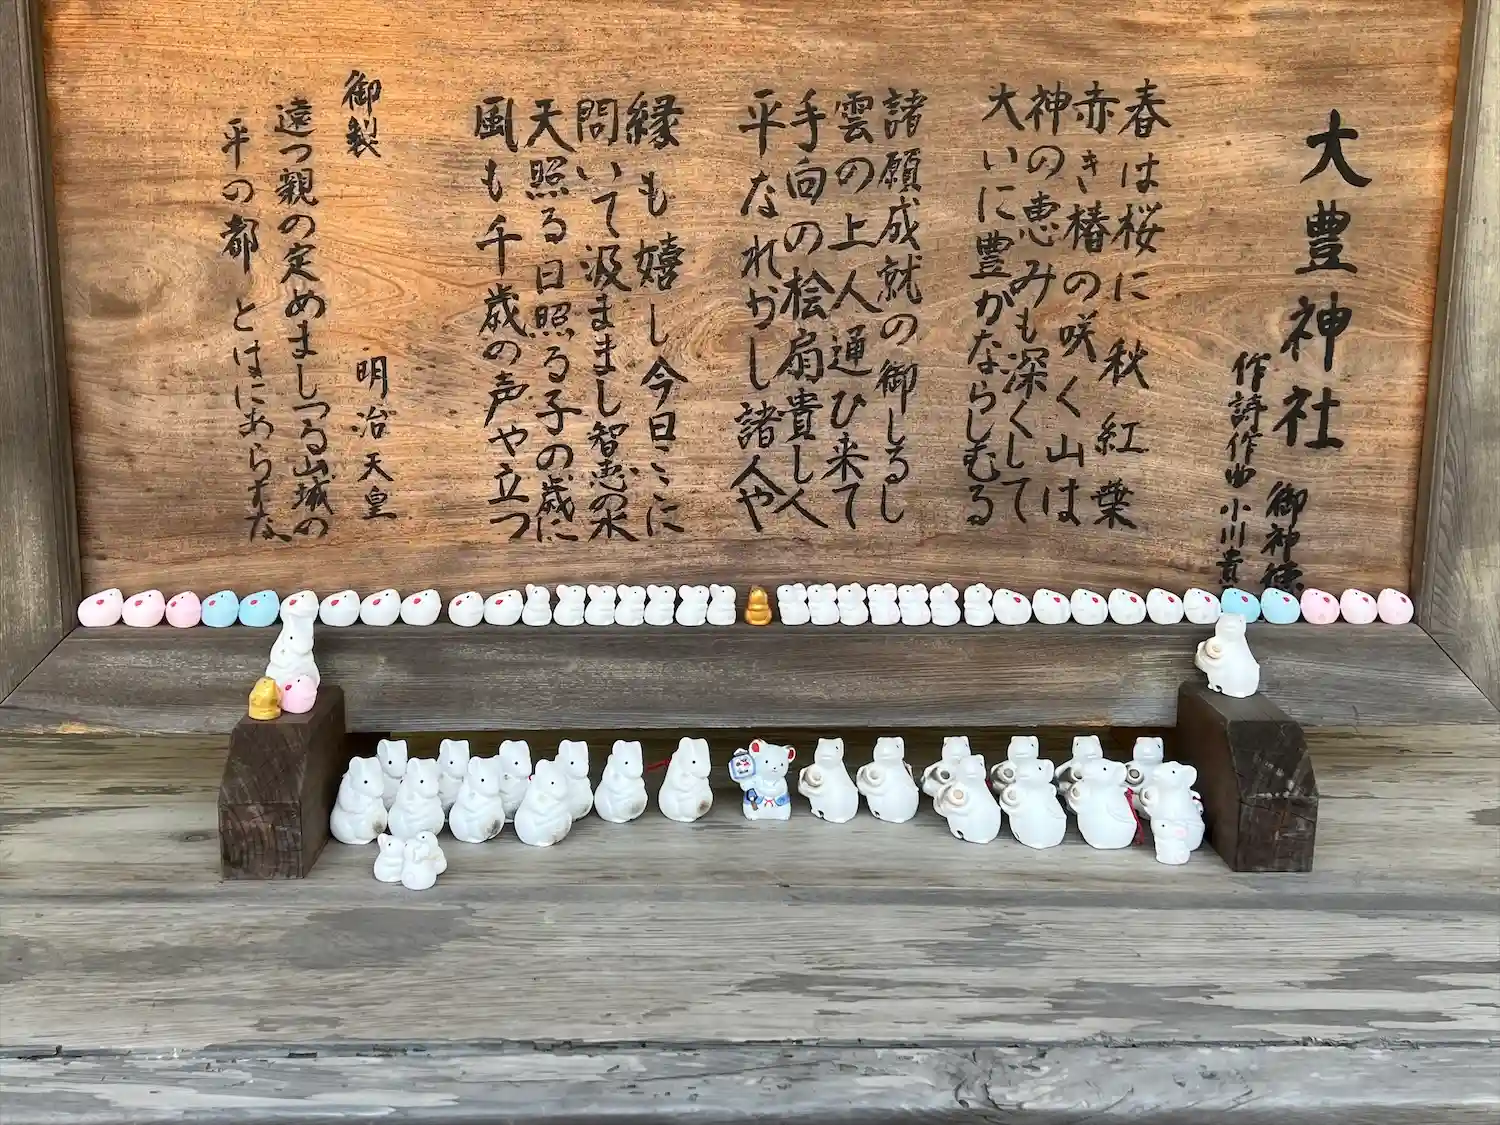 大豊神社
御神徳
作詩作曲 小川貴
春は桜に 秋 紅葉
赤き椿の咲く山は
神の恵みも深くして
大いに豊かならしむる
諸願成就の御しるし
雲の上人通ひ来て
手向の桧扇貴し人
平なれかし諸人や
縁も嬉し今日ここに
問いて汲ままし智恵の水
天照る日照る子の歳に
風も千歳の声や立つ
御製 明治天皇
遠つ親の定めましつる山城の
平の都 とはにあらすな